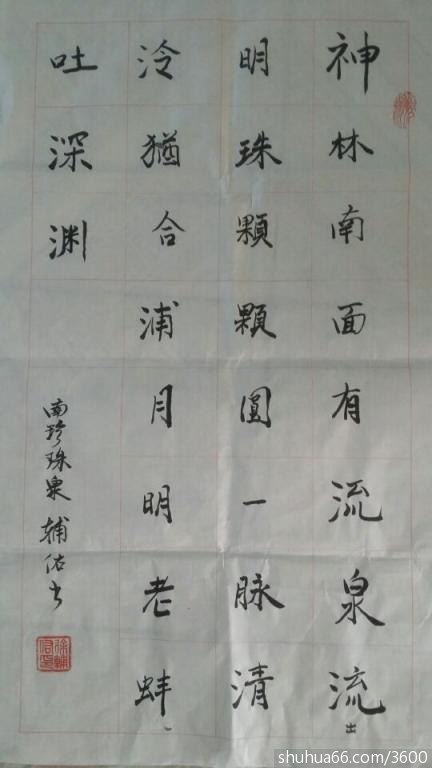 神林南面有流泉流出
明珠顆顆圓一脉清
泠猶合浦月明老蚌
吐深渊
南珍珠泉 輔佑书
shuhua66.com/3600